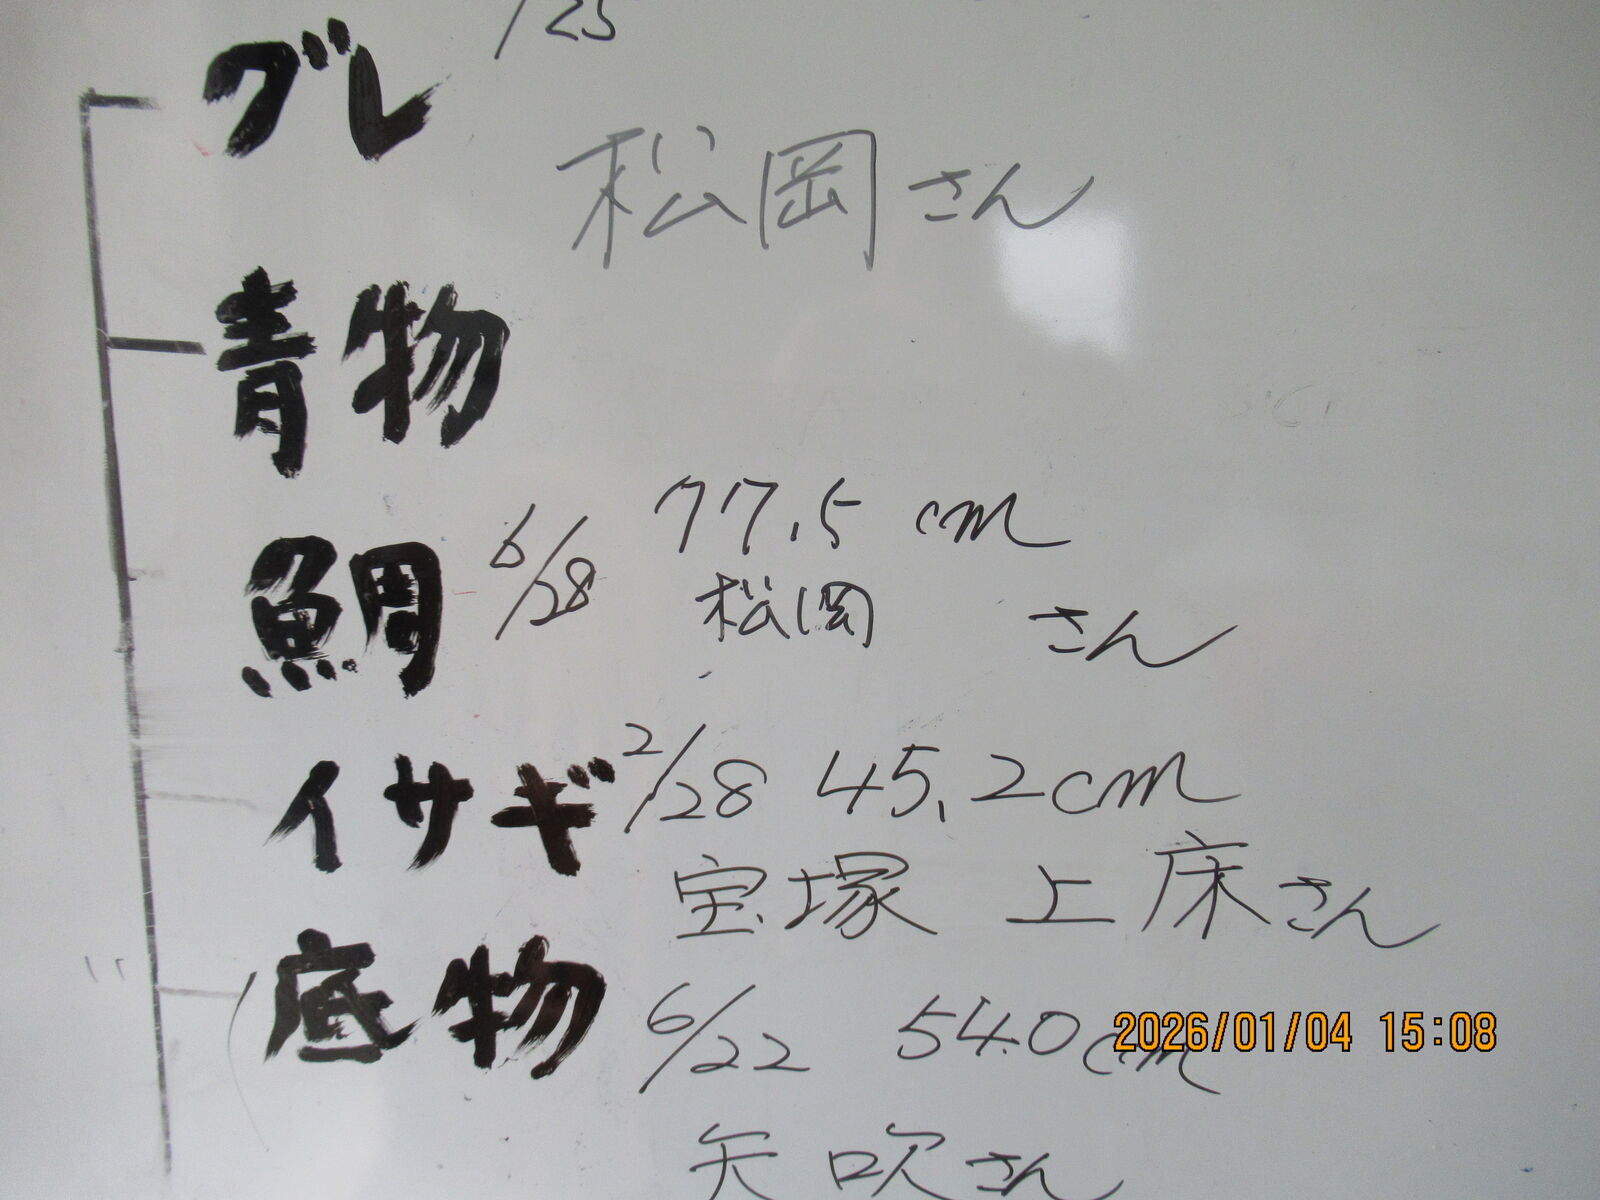 グレ /25
松岡さん
青物
鯛 6/28 77.5cm
松岡 さん
イサギ 2/28 45.2cm
宝塚 上床さん
底物 6/22 54.0cm
矢吹さん
2026/01/04 15:08